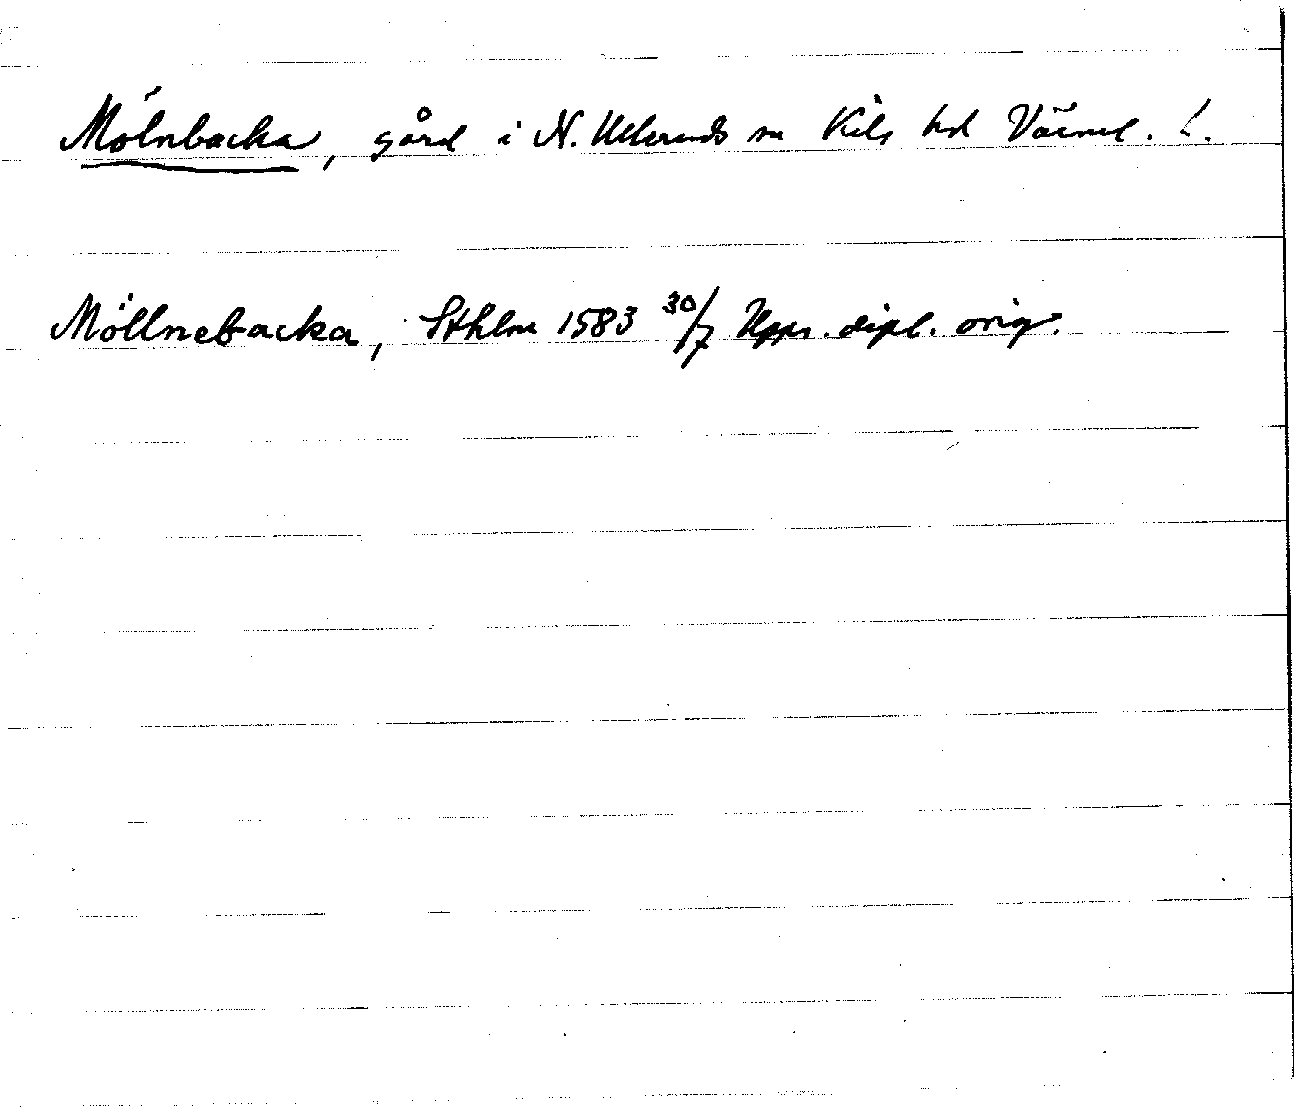 Mölnbacka, gård i N. Ulleruds sn Kils hd Värml. L.
Möllnebacka, Sthlm 1583 30/7 Upps. dipl. orig.